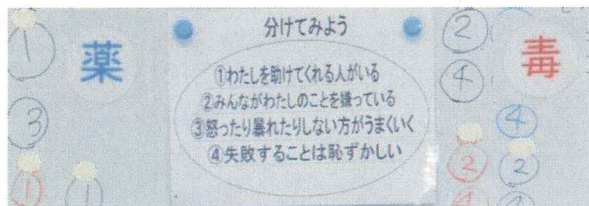 分けてみよう
薬
毒
①わたしを助けてくれる人がいる
②みんながわたしのことを嫌っている
③怒ったり暴れたりしない方がうまくいく
④失敗することは恥ずかしい
①
③
①
①
②
④
④
②
②
④